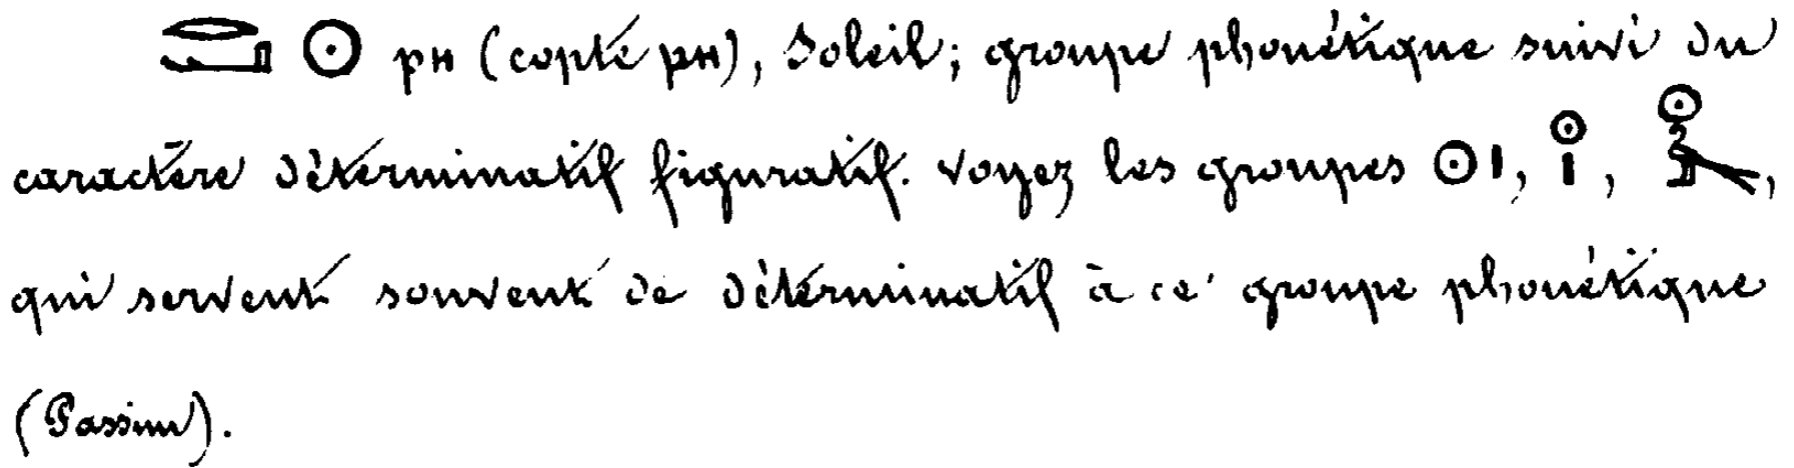 𓂋𓂝 𓇳 ⲣⲏ (copte ⲣⲏ), Soleil; groupe phonétique suivi du
caractère déterminatif figuratif. Voyez les groupes 𓇳𓏤, 𓇳𓏤, 
qui servent souvent de déterminatif à ce groupe phonétique
(Passim).